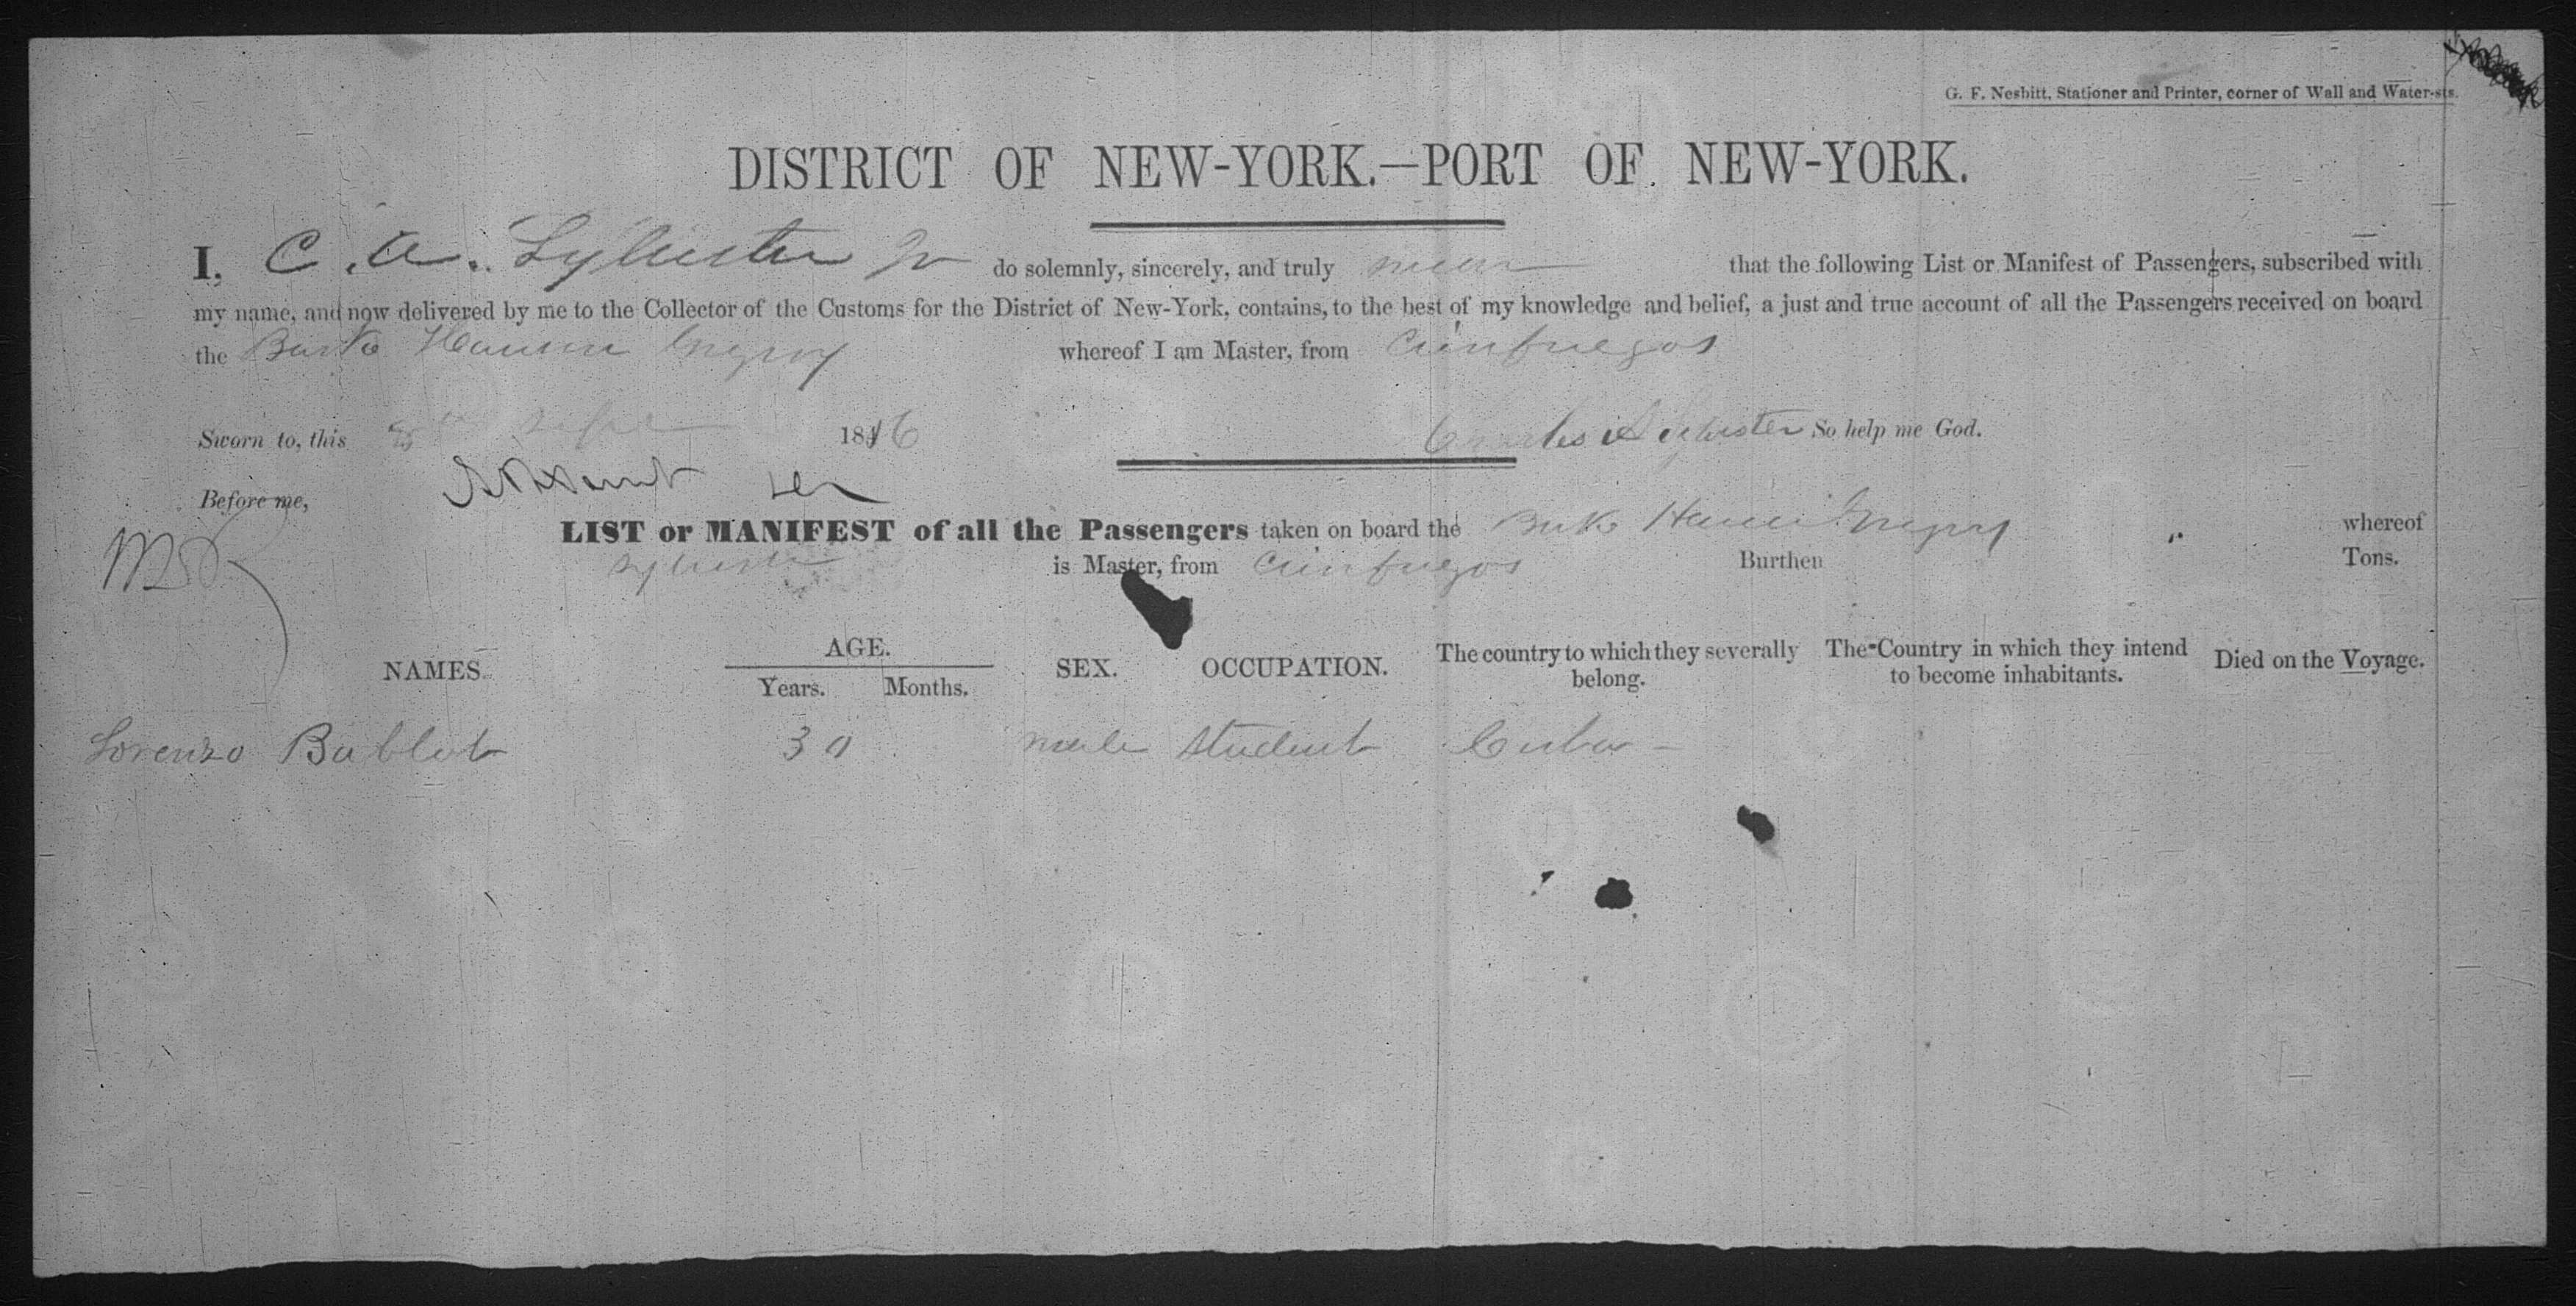 G. F. Nesbitt, Stationer and Printer, corner of Wall and Water-sts.
DISTRICT OF NEW-YORK.—PORT OF NEW-YORK.
I, C. A. Sylvester Jr do solemnly, sincerely, and truly swear that the following List or Manifest of Passengers, subscribed with
my name, and now delivered by me to the Collector of the Customs for the District of New-York, contains, to the best of my knowledge and belief, a just and true account of all the Passengers received on board
the whereof I am Master, from Cienfuegos
Sworn to, this 1846 Charles A Sylvester So help me God.
Before me,
LIST or MANIFEST of all the Passengers taken on board the whereof
Sylvester is Master, from Cienfuegos Burthen Tons.
NAMES. AGE. Years. Months. SEX. OCCUPATION. The country to which they severally belong. The Country in which they intend to become inhabitants. Died on the Voyage.
Lorenzo 30 male student Cuba